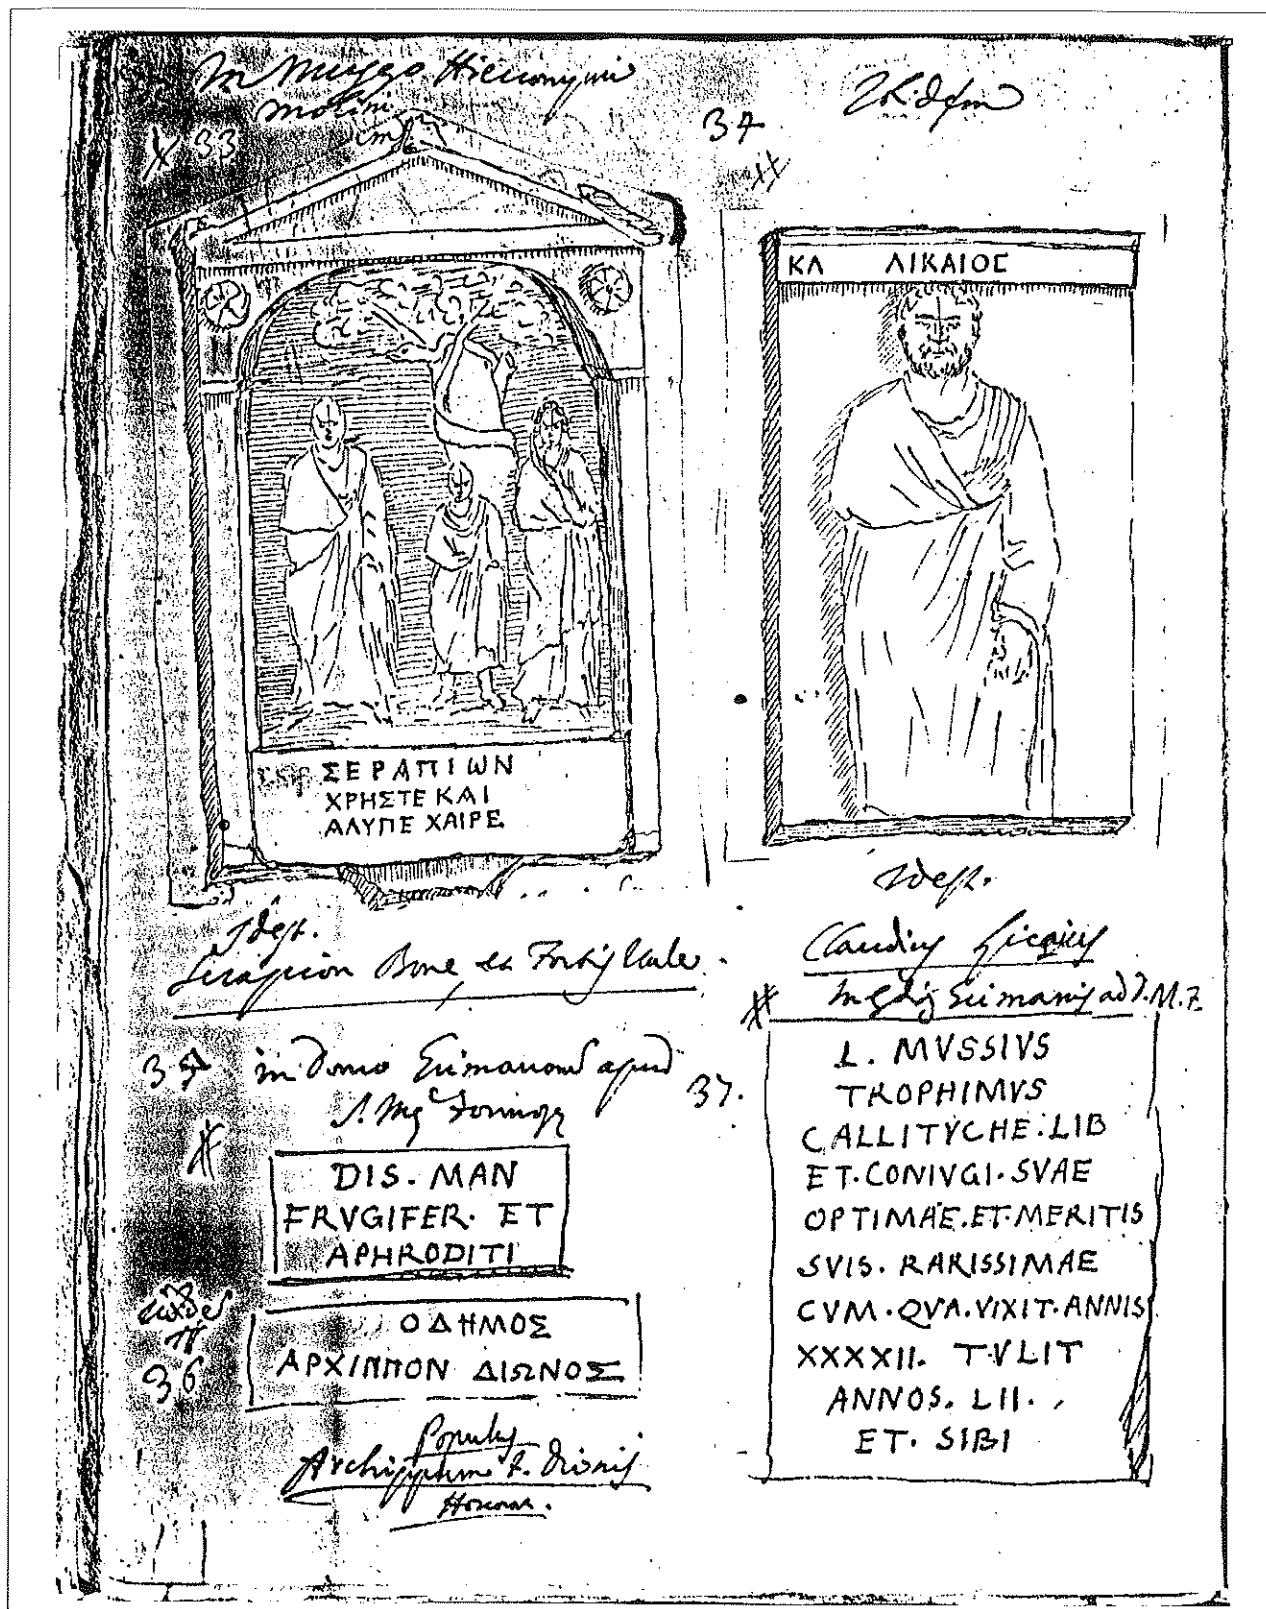 In Museo Hieronymi
Molini
33
ΣΕΡΑΠΙΩΝ
ΧΡΗΣΤΕ ΚΑΙ
ΑΛΥΠΕ ΧΑΙΡΕ
Idest.
Serapion Bone, et Fortis Vale.
34
Ibidem
ΚΛ ΛΙΚΑΙΟC
Idest.
Claudius
35 in domo Erimanorum apud
DIS. MAN
FRVGIFER. ET
APHRODITI
36
Ο ΔΗΜΟΣ
ΑΡΧΙΠΠΟΝ ΔΙΩΝΟΣ
Populus
Archippum F. Dionis
Honorat.
37.
L. MVSSIVS
TROPHIMVS
CALLITYCHE. LIB
ET. CONIVGI. SVAE
OPTIMAE. ET. MERITIS
SVIS. RARISSIMAE
CVM. QVA. VIXIT. ANNIS
XXXXII. TVLIT
ANNOS. LII.
ET. SIBI